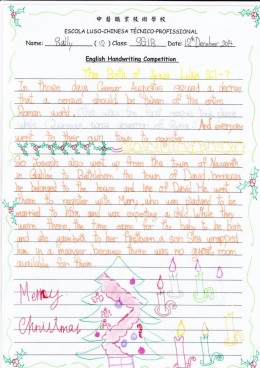 ESCOLA LUSO-CHINESA TÉCNICO-PROFISSIONAL
Name: Sally (12) Class: SG1B Date: 12th December 2014
English Handwriting Competition
The Birth of Jesus Luke 2:1-7
In those days Caesar Augustus issued a decree
that a census should be taken of the entire
Roman world.
And everyone
went to their own town to register
So Joseph also went up from the town of Nazareth
in Galilee to Bethlehem the town of David because
he belonged to the house and line of David. He went
there to register with Mary, who was pledged to be
married to him and was expecting a child. While they
were there, the time came for the baby to be born,
and she gave birth to her firstborn a son. She wrapped
him in a manger because there was no guest room
available for them.
Merry
Christmas